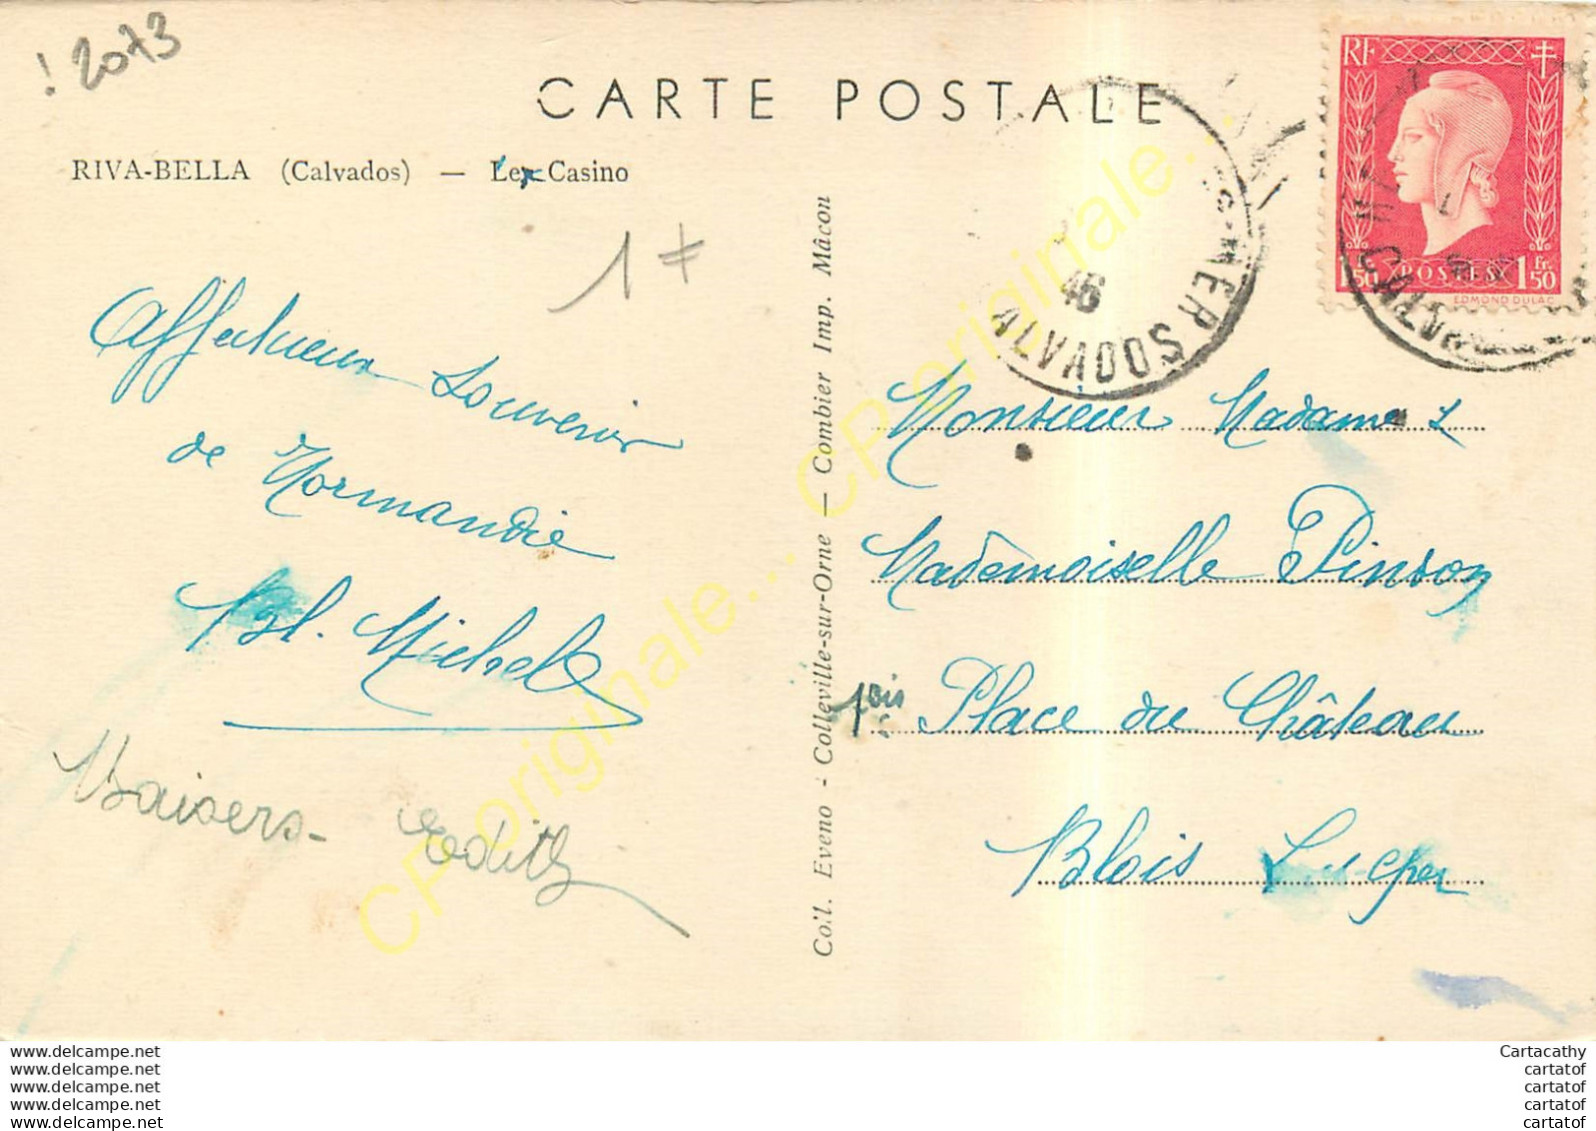 ! 2073
CARTE POSTALE
RIVA-BELLA (Calvados) — Lex Casino
1 ≠
Affectueux Souvenir
de Normandie
Bl. Michel
Baisers - Edith
Coll. Eveno - Colleville-sur-Orne — Combier Imp. Mâcon
RF
1,50 POSTES 1Fr.50
EDMOND DULAC
S-MER
46
CALVADOS
CALVADOS
Monsieur Madame &
Mademoiselle Pinson
1bis Place du Château
Blois L-et-Cher
CP originale... CP originale... CP originale...
www.delcampe.net
www.delcampe.net
www.delcampe.net
www.delcampe.net
www.delcampe.net
Cartacathy
cartatof
cartatof
cartatof
cartatof